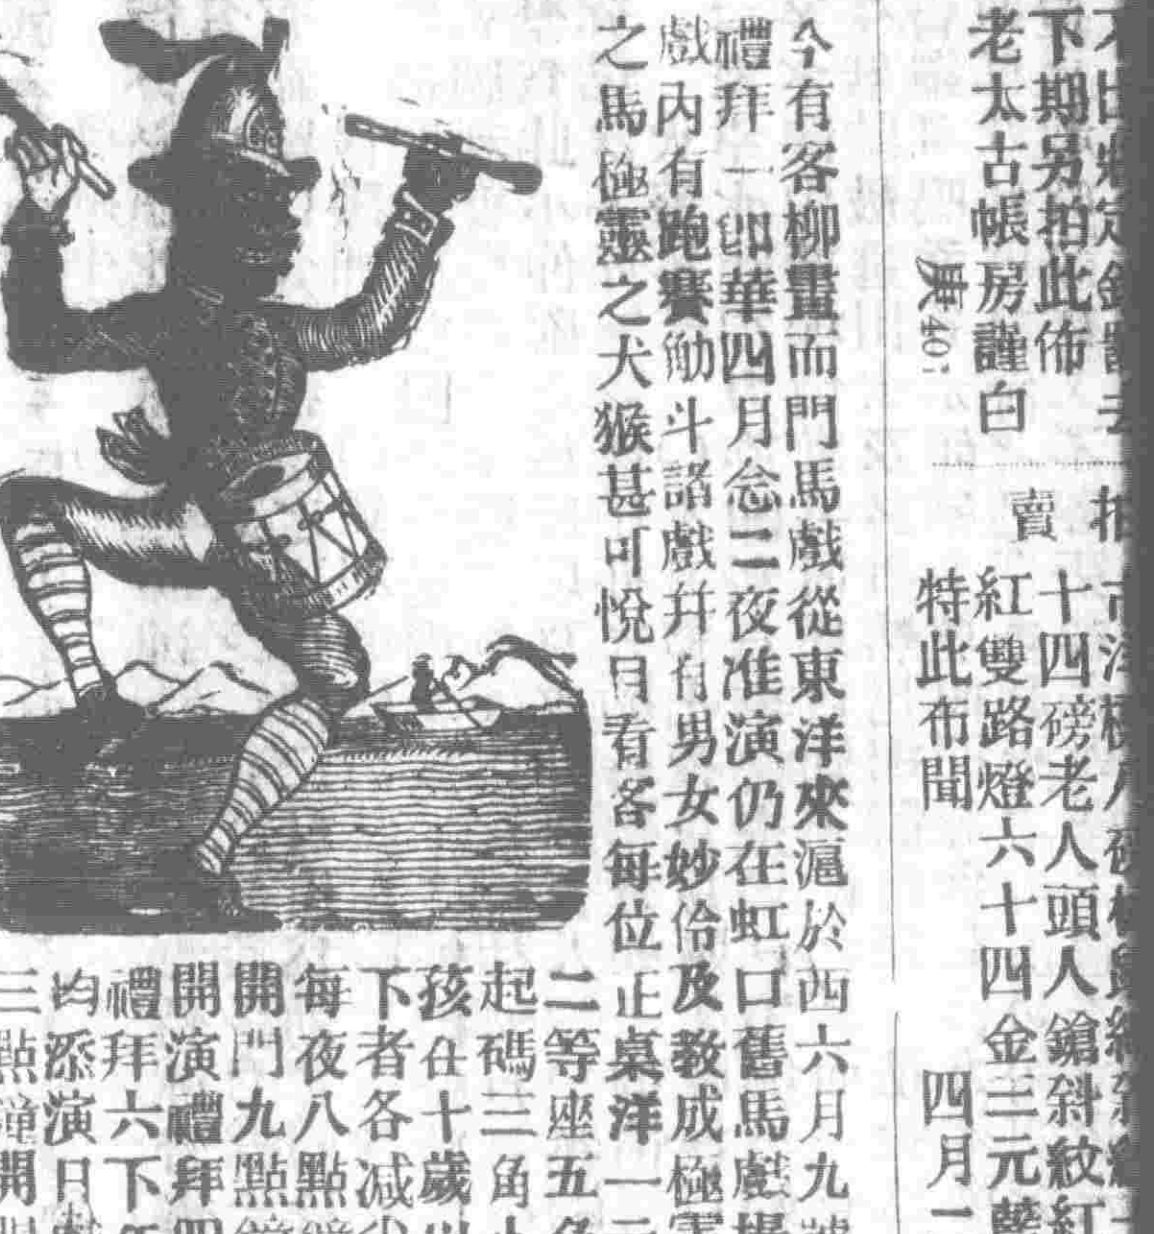 下期另拍此佈
老太古帳房謹白
庚40
賣
十四磅老人頭人鎗斜紋紅
紅雙路燈六十四金三元藍
特此布聞
四月二
今有客柳晝而門馬戲從東洋來滬於西六月九號
禮拜一即華四月念二夜准演仍在虹口舊馬戲場
戲內有跑賽觔斗諸戲并有男女妙伶及教成極靈
之馬極靈之犬猴甚可悅目看客每位正桌洋一元
二等座五角
起碼三角小
孩在十歲以
下者各減半
每夜八點鐘
開門九點鐘
開演禮拜四
禮拜六下午
均添演日戲
三點鐘開門